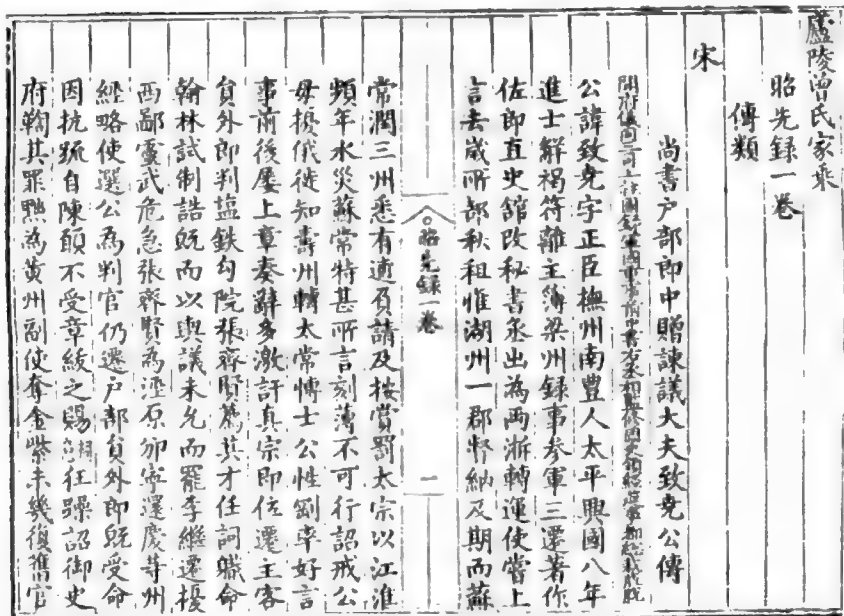 廬陵曾氏家乘
昭先録一卷
傳類
宋
尚書户部郎中贈諫議大夫致堯公傳
開府儀同三司上柱國録軍國重事前中書右丞相監修國史領經筵事都總裁脱脱
公諱致堯字正臣撫州南豐人太平興國八年
進士解褐符離主簿梁州録事參軍三遷著作
佐郎直史館改秘書丞出為兩浙轉運使嘗上
言去歲所部秋租惟湖州一郡督納及期而蘇
昭先録一卷
一
常潤三州悉有逋負請及按賞罰太宗以江淮
頻年水災蘇常特甚所言刻薄不可行詔戒公
毋擾俄徙知壽州轉太常博士公性剛率好言
事前後屢上章奏辭多激訐真宗即位遷主客
貟外郎判塩鉄勾院張齊賢薦其才任詞職命
翰林試制誥既而以輿議未允而罷李繼遷擾
西鄙靈武危急張齊賢為涇原邠寧還慶等州
經略使選公為判官仍遷户部貟外郎既受命
因抗疏自陳願不受章綬之賜詞狂躁詔御史
府鞫其罪黜為黄州副使奪金紫未幾復舊官